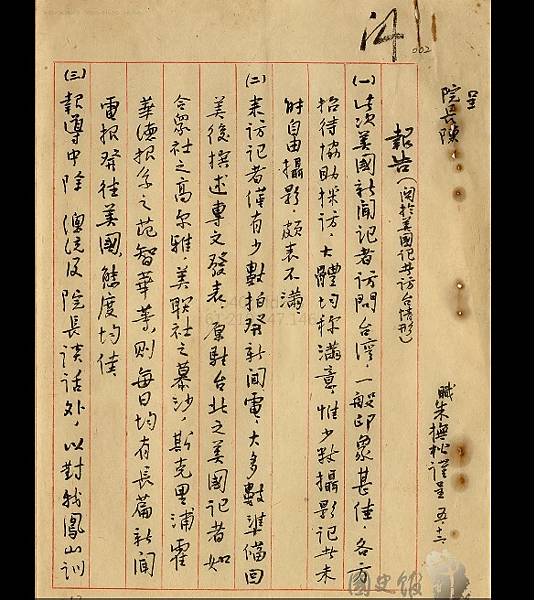 002
呈
院長陳
報告(関於美國記者訪台情形)
職朱撫松謹呈 五、十三
(一)此次美國新聞記者訪問台灣,一般印象甚佳,各方
招待協助採訪,大體均稱滿意,惟少數攝影記者未
能自由攝影,頗表不滿。
(二)來訪記者僅有少數拍發新聞電,大多數準備回
美後撰述專文發表,原駐台北之美國記者如
合眾社之高尔雅,美联社之慕沙,斯克里浦霍
華德报系之范智華等,則每日均有長篇新聞
電报發往美國,態度均佳。
(三)報導中除 總統及 院長談話外,以對我鳳山訓
國史館